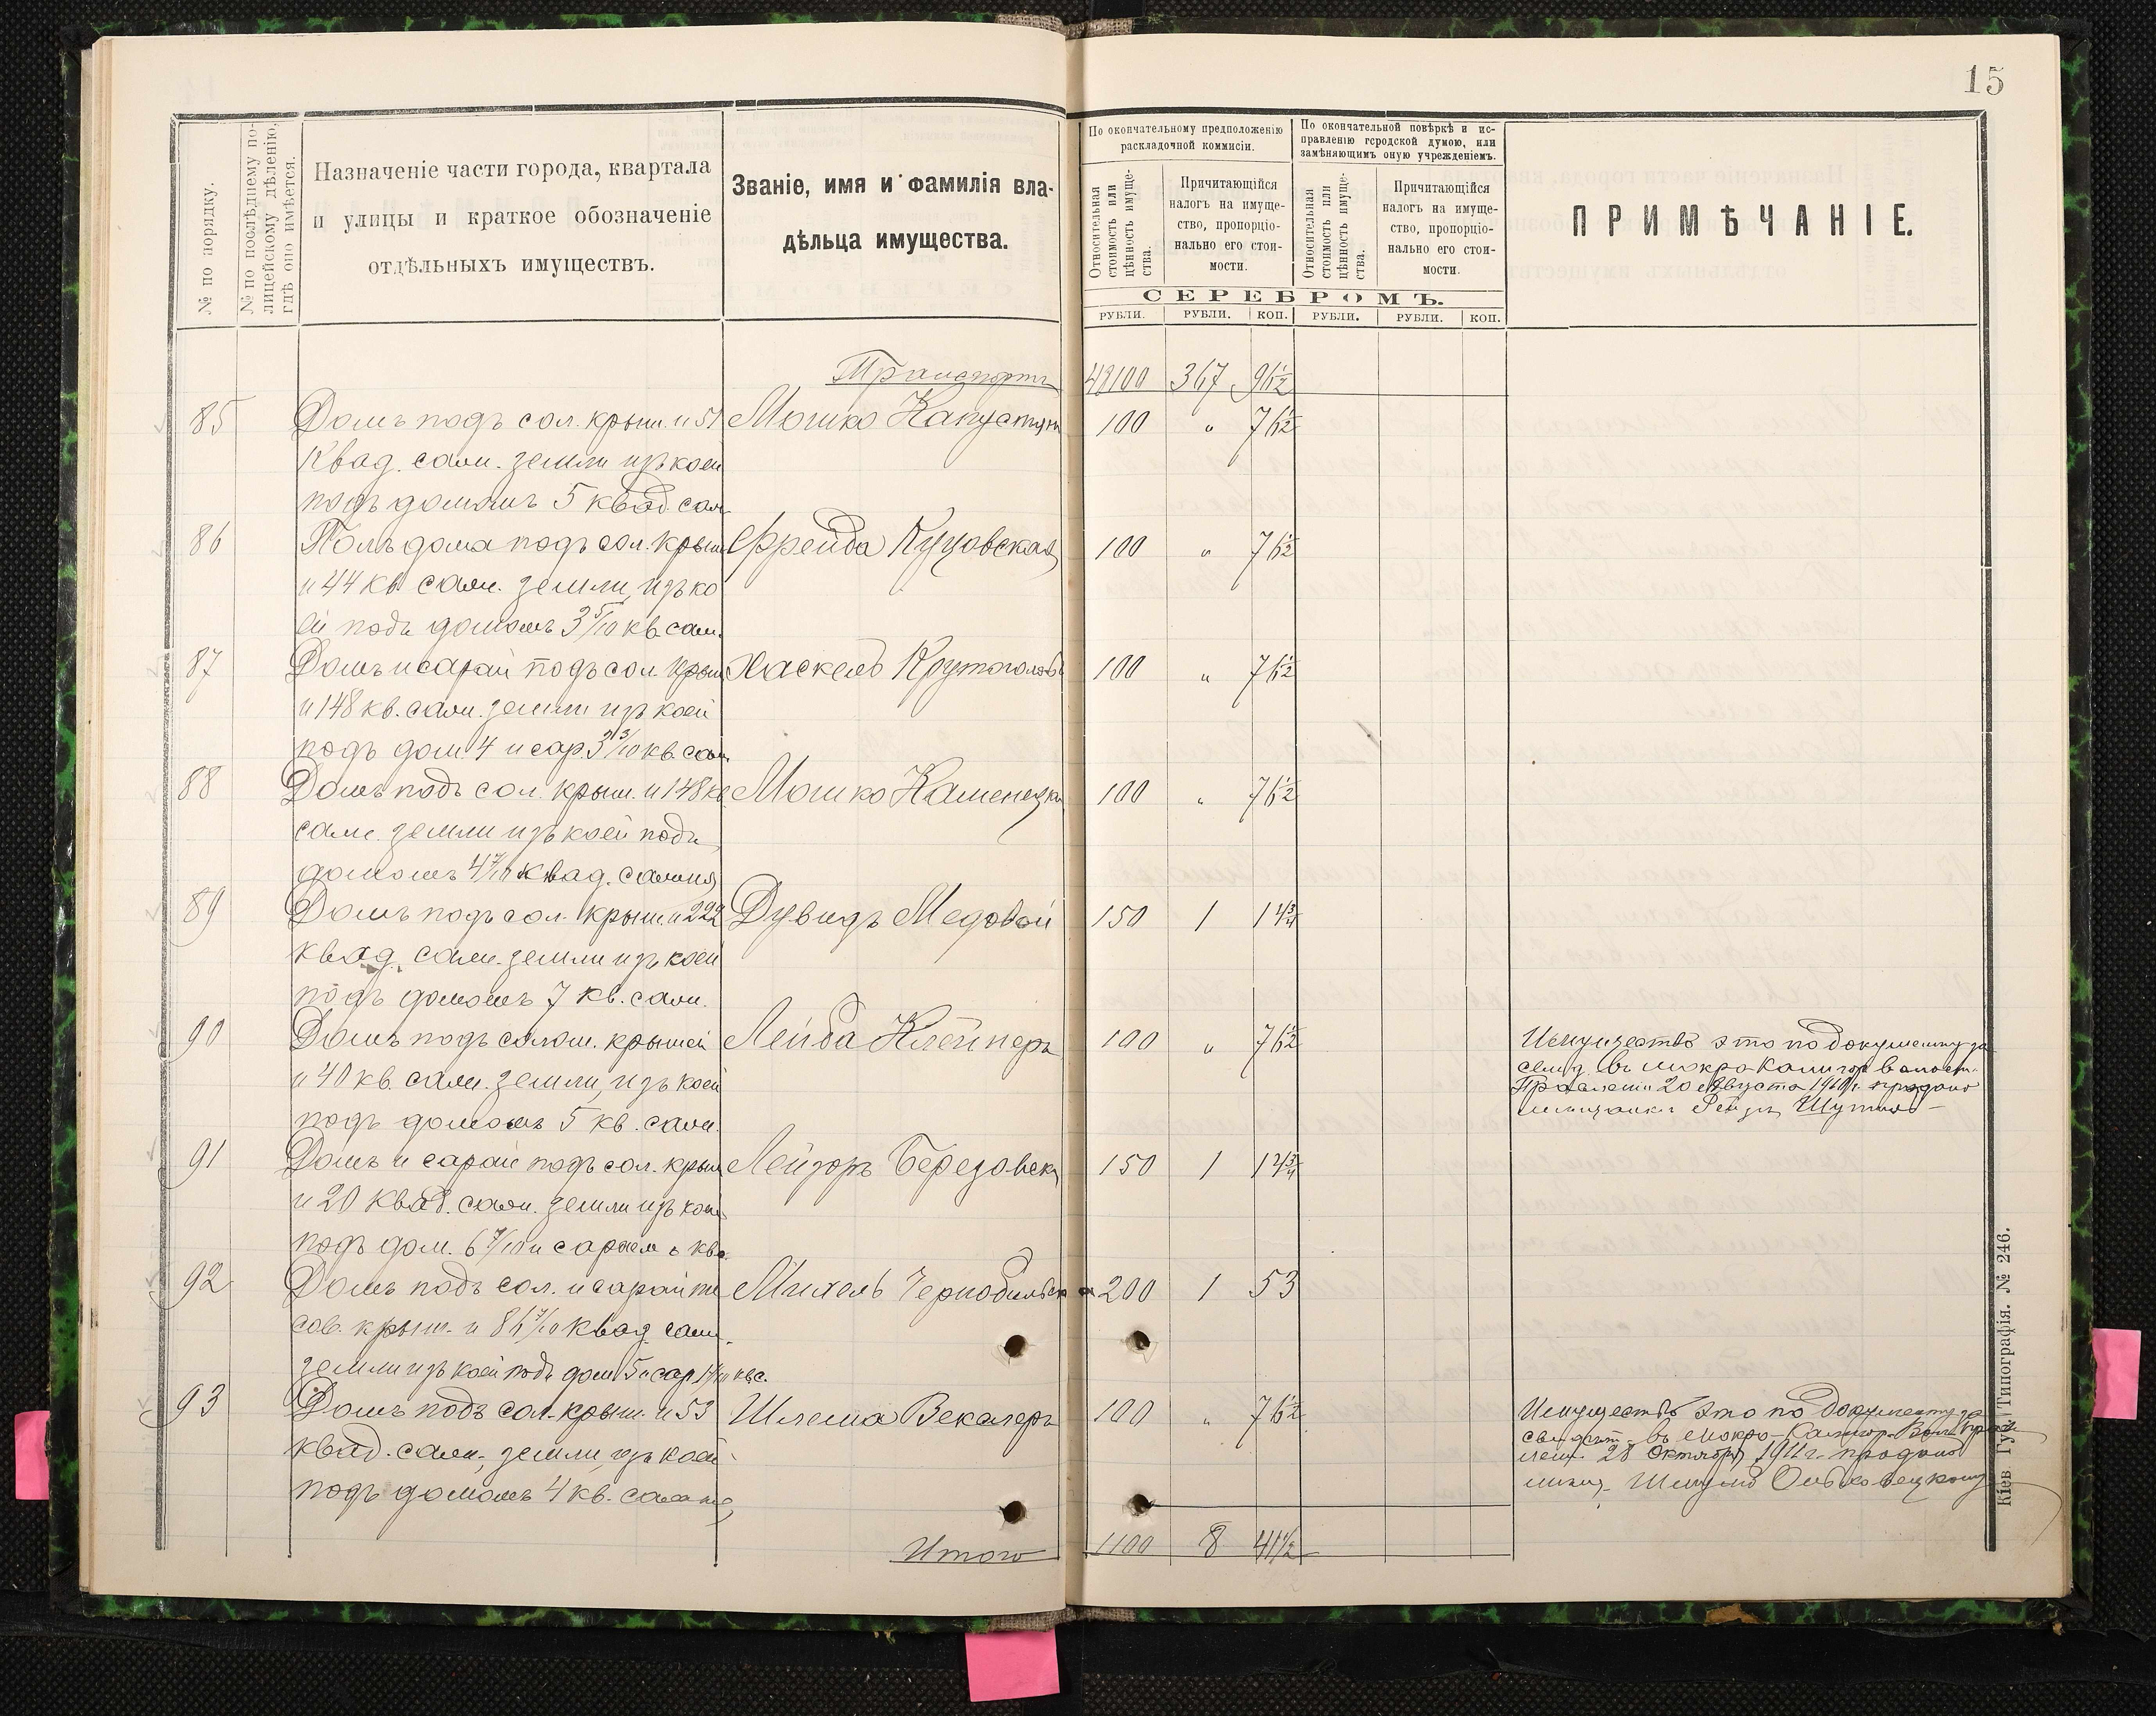 15
№ по порядку.
№ по послѣднему по-
лицейскому дѣленію,
гдѣ оно имѣется.
Назначеніе части города, квартала
и улицы и краткое обозначеніе
отдѣльныхъ имуществъ.
Званіе, имя и фамилія вла-
дѣльца имущества.
По окончательному предположенію
раскладочной коммисіи.
По окончательной повѣркѣ и ис-
правленію городской думою, или
замѣняющимъ оную учрежденіемъ.
Относительная
стоимость или
цѣнность имуще-
ства.
Причитающійся
налогъ на имуще-
ство, пропорціо-
нально его стои-
мости.
Относительная
стоимость или
цѣнность имуще-
ства.
Причитающійся
налогъ на имуще-
ство, пропорціо-
нально его стои-
мости.
ПРИМѢЧАНІЕ.
СЕРЕБРОМЪ.
РУБЛИ. РУБЛИ. КОП. РУБЛИ. РУБЛИ. КОП.
Транспортъ 48100 367 96½
85 Домъ подъ сол. крыш. и 51 Мошко Капустян 100 " 76½
квад. саж. земли изъ коей
подъ домомъ 5 квад. саж.
86 Полъ дома подъ сол. крыш Фрейда Куцовская 100 " 76½
и 44 кв саж. земли, изъ ко
ей подъ домомъ 3 5/10 кв. саж.
87 Домъ и сарай подъ сол. крыш Хаскель 100 " 76½
и 148 кв. саж. земли изъ коей
подъ дом. 4 и сар. 3 3/10 кв. саж
88 Домъ подъ сол. крыш. и 148 кв Мошко Каменецки 100 " 76½
саж. земли изъ коей подъ
домомъ 4 7/10 квад. сажня
89 Домъ подъ сол. крыш. и 222 Дувидъ Медовой 150 1 14¾
квад. саж. земли изъ коей
подъ домомъ 7 кв. саж.
90 Домъ подъ солом. крышей Лейба Клейнеръ 100 " 76½
и 40 кв. саж. земли, изъ коей
подъ домомъ 5 кв. саж.
Имущество это по документу за
свид. въ Мокрокалигор. волост.
Правленіи 20 Августа продано
мѣщанкѣ Рейзѣ
91 Домъ и сарай подъ сол. крыш Лейзоръ Березовск 150 1 14¾
и 20 квад. саж. земли изъ коей
подъ дом. 6 7/10 и сараемъ кв.
92 Домъ подъ сол. и сарай те Михель Чернобильск 200 1 53
сов. крыш. и 86 7/10 квад. саж.
земли изъ коей подъ дом 5 и сар кв с.
93 Домъ подъ сол. крыш. и 53 Шлема Векслеръ 100 " 76½
квад. саж., земли, изъ коей
подъ домомъ 4 кв. сажня,
Имущество это по документу за
свидѣт. въ Мокро-Калигор. Вол. Прав
лен. 28 Октября 1911 г. продано
мѣщ. Шмулю Ольховецкому
Итого 1100 8 41½
Кіев. Губ. Типографія. № 246.